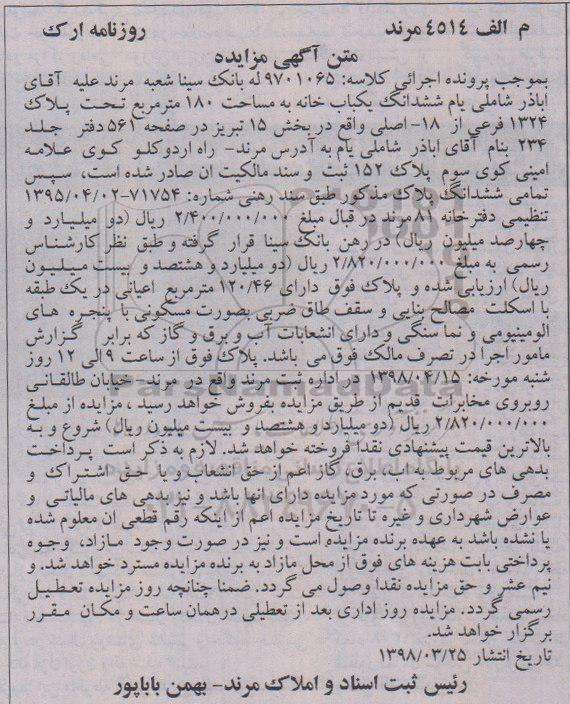 م الف ٤٥١٤ مرند
روزنامه ارک
متن آگهی مزایده
بموجب پرونده اجرائی کلاسه: ۹۷۰۱۰۶۵ له بانک سینا شعبه مرند علیه آقای
اباذر شاملی یام ششدانگ یکباب خانه به مساحت ۱۸۰ مترمربع تحت پلاک
۱۳۲۴ فرعی از ۱۸- اصلی واقع در بخش ۱۵ تبریز در صفحه ۵٦۱ دفتر جلد
۲۳۴ بنام آقای اباذر شاملی یام به آدرس مرند- راه اردوکلو کوی علامه
امینی کوی سوم پلاک ۱۵۲ ثبت و سند مالکیت ان صادر شده است، سپس
تمامی ششدانگ پلاک مذکور طبق سند رهنی شماره: ۷۱۷۵۴-۱۳۹۵/۰۴/۰۲
تنظیمی دفترخانه ۸۱ مرند در قبال مبلغ ۲/۴۰۰/۰۰۰/۰۰۰ ریال (دو میلیارد و
چهارصد میلیون ریال) در رهن بانک سینا قرار گرفته و طبق نظر کارشناس
رسمی به مبلغ ۲/۸۲۰/۰۰۰/۰۰۰ ریال (دو میلیارد و هشتصد و بیست میلیون
ریال) ارزیابی شده و پلاک فوق دارای ۱۲۰/۴٦ مترمربع اعیانی در یک طبقه
با اسکلت مصالح بنایی و سقف طاق ضربی بصورت مسکونی با پنجره های
الومینیومی و نما سنگی و دارای انشعابات آب و برق و گاز که برابر گزارش
مامور اجرا در تصرف مالک فوق می باشد. پلاک فوق از ساعت ۹ الی ۱۲ روز
شنبه مورخه: ۱۳۹۸/۰۴/۱۵ در اداره ثبت مرند واقع در مرند- خیابان طالقانی
روبروی مخابرات قدیم از طریق مزایده بفروش خواهد رسید، مزایده از مبلغ
۲/۸۲۰/۰۰۰/۰۰۰ ریال (دو میلیارد و هشتصد و بیست میلیون ریال) شروع و به
بالاترین قیمت پیشنهادی نقدا فروخته خواهد شد. لازم به ذکر است پرداخت
بدهی های مربوط به اب، برق، گاز اعم از حق انشعاب و یا حق اشتراک و
مصرف در صورتی که مورد مزایده دارای انها باشد و نیز بدهی های مالیاتی و
عوارض شهرداری و غیره تا تاریخ مزایده اعم از اینکه رقم قطعی ان معلوم شده
یا نشده باشد به عهده برنده مزایده است و نیز در صورت وجود مازاد، وجوه
پرداختی بابت هزینه های فوق از محل مازاد به برنده مزایده مسترد خواهد شد. و
نیم عشر و حق مزایده نقدا وصول می گردد. ضمنا چنانچه روز مزایده تعطیل
رسمی گردد. مزایده روز اداری بعد از تعطیلی درهمان ساعت و مکان مقرر
برگزار خواهد شد.
تاریخ انتشار ۱۳۹۸/۰۳/۲۵
رئیس ثبت اسناد و املاک مرند- بهمن باباپور
ParsNamadData